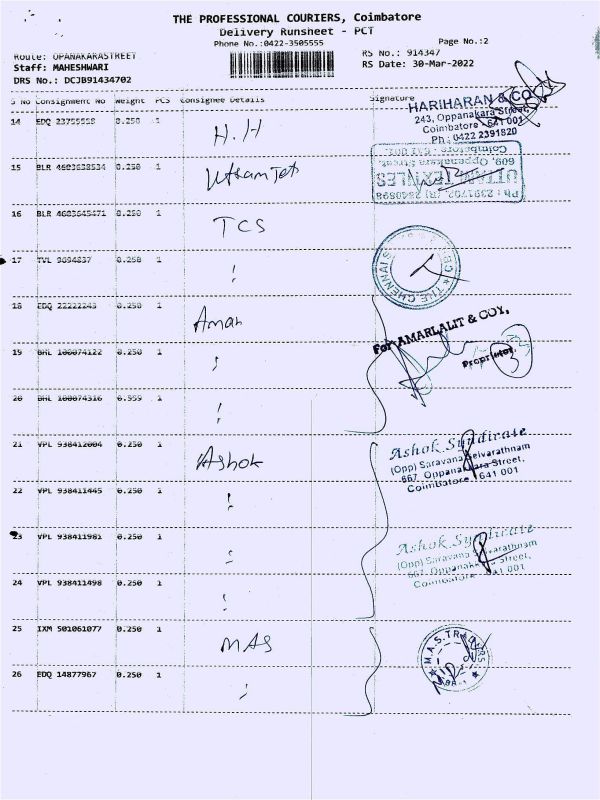 THE PROFESSIONAL COURIERS, Coimbatore
Delivery Runsheet - PCT
Phone No.:0422-3505555
Page No.:2
Route: OPANAKARASTREET
RS No.: 914347
Staff: MAHESHWARI
RS Date: 30-Mar-2022
DRS No.: DCJB91434702
S No Consignment No Weight PCS Consignee Details Signature
14 EDQ 0.250 1 H.H
HARIHARAN & CO
243, Oppanakara Street,
Coimbatore - 641 001
Ph : 0422 2391820
15 BLR 4603638534 0.250 1
UTTAM TEXTILES
609, Oppanakara Street,
Coimbatore - 641 001
16 BLR 4603645471 0.250 1 TCS
17 TVL 9694837 0.250 1 "
THE CHENNAI S
18 EDQ 22222243 0.250 1 Aman
For AMARLALIT & COY,
Proprietor.
3
19 BHL 100074122 0.250 1 "
20 BHL 100074316 1 "
21 VPL 938412004 0.250 1 Ashok
Ashok Syndicate
(Opp) Saravana Selvarathnam
667, Oppanakkara Street,
Coimbatore - 641 001
22 VPL 938411445 0.250 1 "
23 VPL 938411981 0.250 1 "
Ashok Syndicate
(Opp) Saravana Selvarathnam
667, Oppanakkara Street,
Coimbatore - 641 001
24 VPL 938411498 0.250 1 "
25 IXM 501061077 0.250 1 MAS
M.A.S. TRADERS
26 EDQ 14877967 0.250 1 "